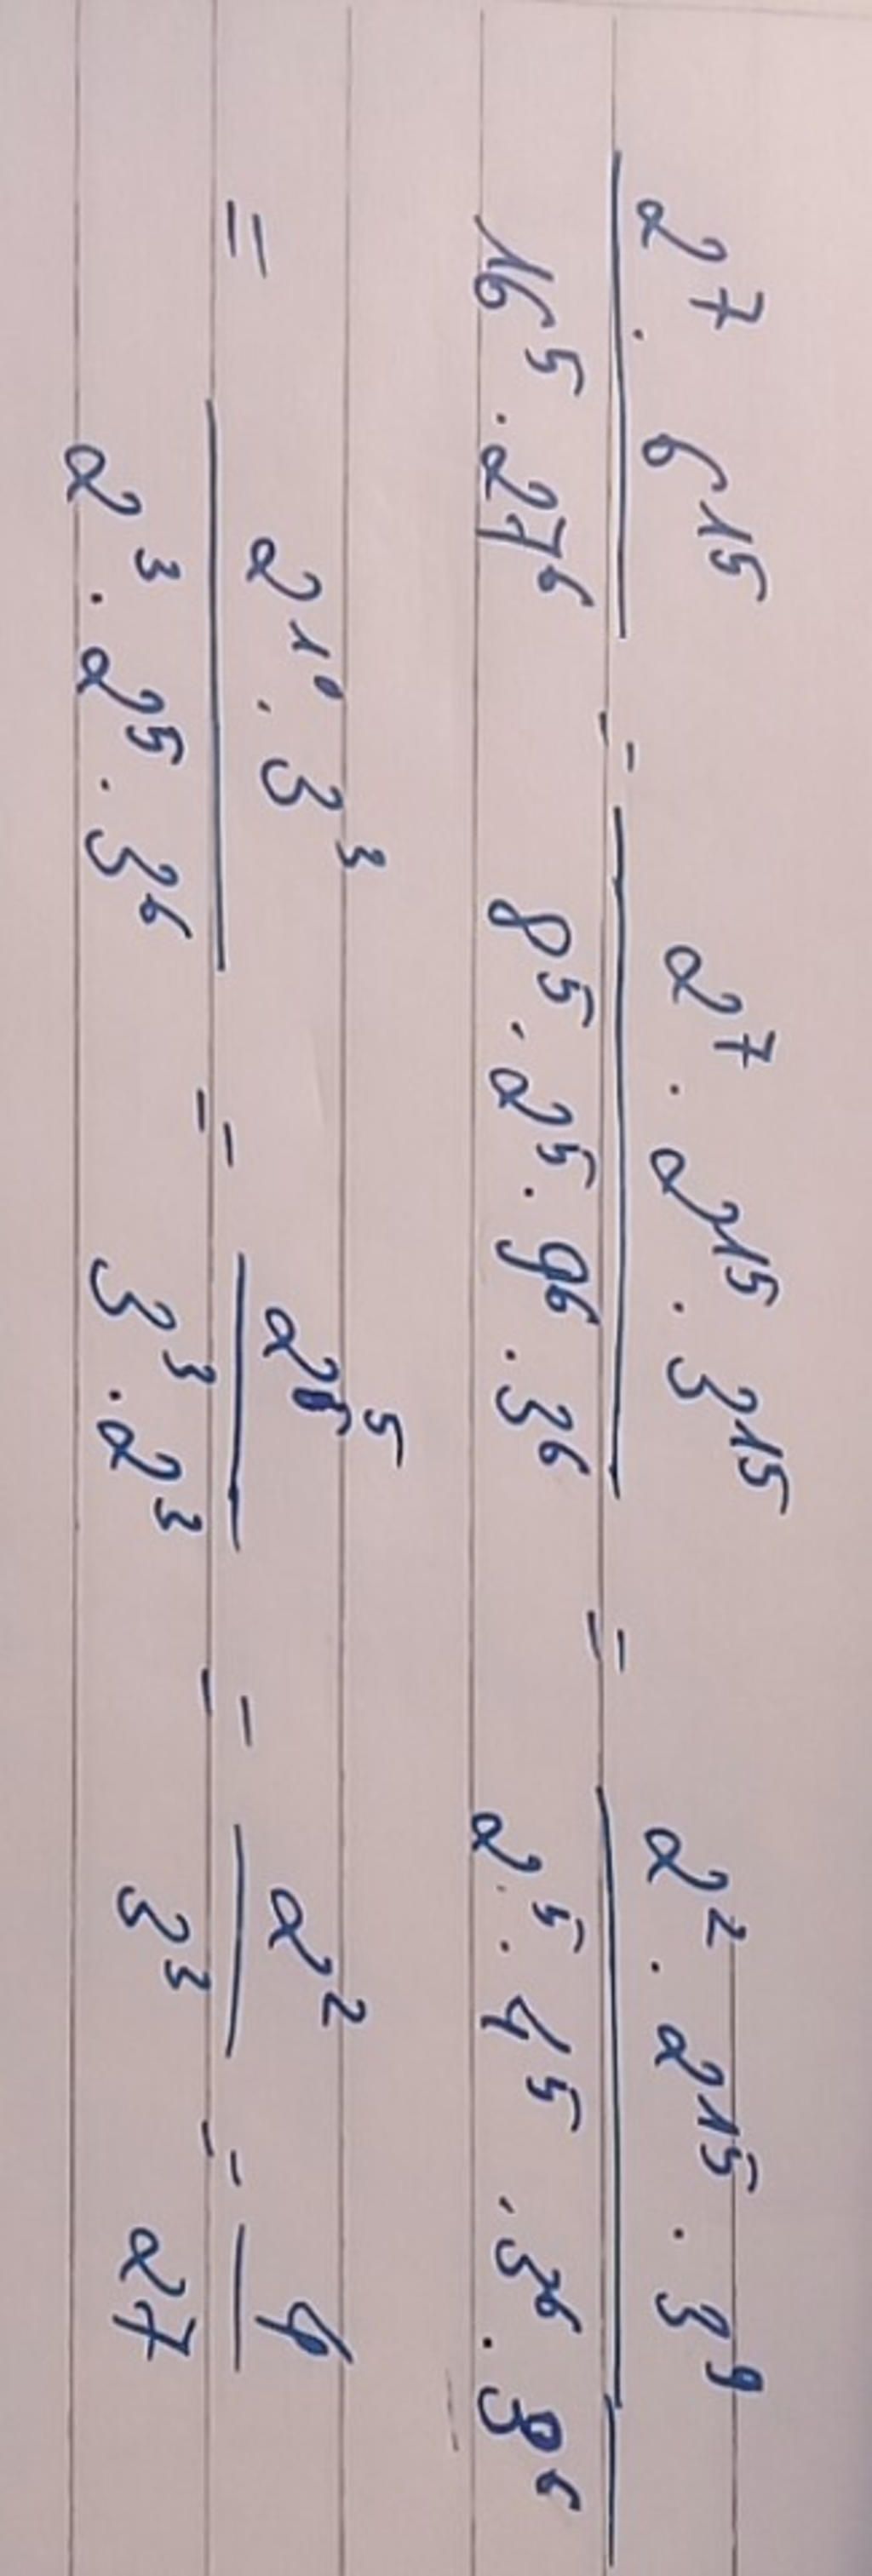 2⁷ · 6¹⁵ / 16⁵ · 27⁶ = 2⁷ · 2¹⁵ · 3¹⁵ / 8⁵ · 2⁵ · 9⁶ · 3⁶ = 2² · 2¹⁵ · 3⁹ / 2⁵ · 4⁵ · 3⁶ · 3⁶
= 2¹⁰ · 3³ / 2³ · 2⁵ · 3⁶ = 2⁵ / 3³ · 2³ = 2² / 3³ = 4 / 27